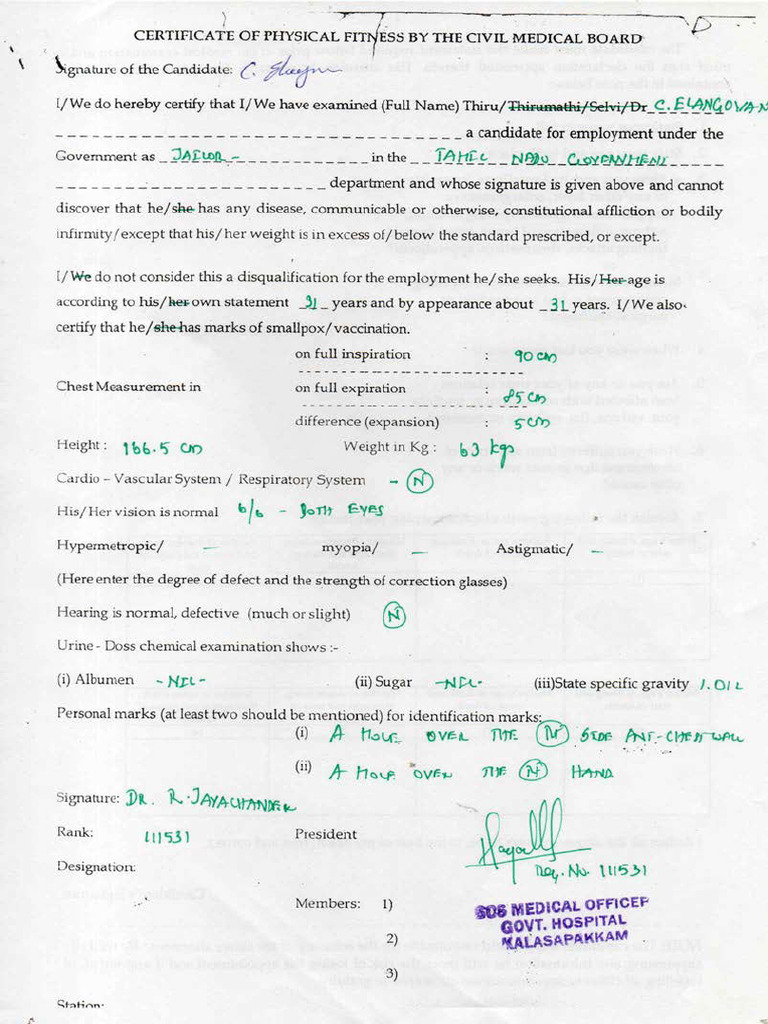 CERTIFICATE OF PHYSICAL FITNESS BY THE CIVIL MEDICAL BOARD
Signature of the Candidate: C.
I/We do hereby certify that I/We have examined (Full Name) Thiru/Thirumathi/Selvi/Dr C. ELANGOVAN
a candidate for employment under the
Government as JAILOR - in the TAMIL NADU GOVERNMENT
department and whose signature is given above and cannot
discover that he/she has any disease, communicable or otherwise, constitutional affliction or bodily
infirmity/except that his/her weight is in excess of/below the standard prescribed, or except.
I/We do not consider this a disqualification for the employment he/she seeks. His/Her age is
according to his/her own statement 31 years and by appearance about 31 years. I/We also
certify that he/she has marks of smallpox/vaccination.
on full inspiration : 90 cm
Chest Measurement in on full expiration : 85 cm
difference (expansion) : 5 cm
Height : 166.5 cm Weight in Kg : 63 kgs
Cardio – Vascular System / Respiratory System - N
His/Her vision is normal 6/6 - BOTH EYES
Hypermetropic/ — myopia/ — Astigmatic/ —
(Here enter the degree of defect and the strength of correction glasses)
Hearing is normal, defective (much or slight) N
Urine - Doss chemical examination shows :-
(i) Albumen - NIL - (ii) Sugar - NIL - (iii)State specific gravity
Personal marks (at least two should be mentioned) for identification marks:
(i) A MOLE OVER THE SIDE ANT-CHEST WALL
(ii) A MOLE OVER THE HAND
Signature: DR. R. JAYACHANDER
Rank: 111531 President
Reg. No. 111531
Designation:
Members: 1)
MEDICAL OFFICER
GOVT. HOSPITAL
KALASAPAKKAM
2)
3)
Station: